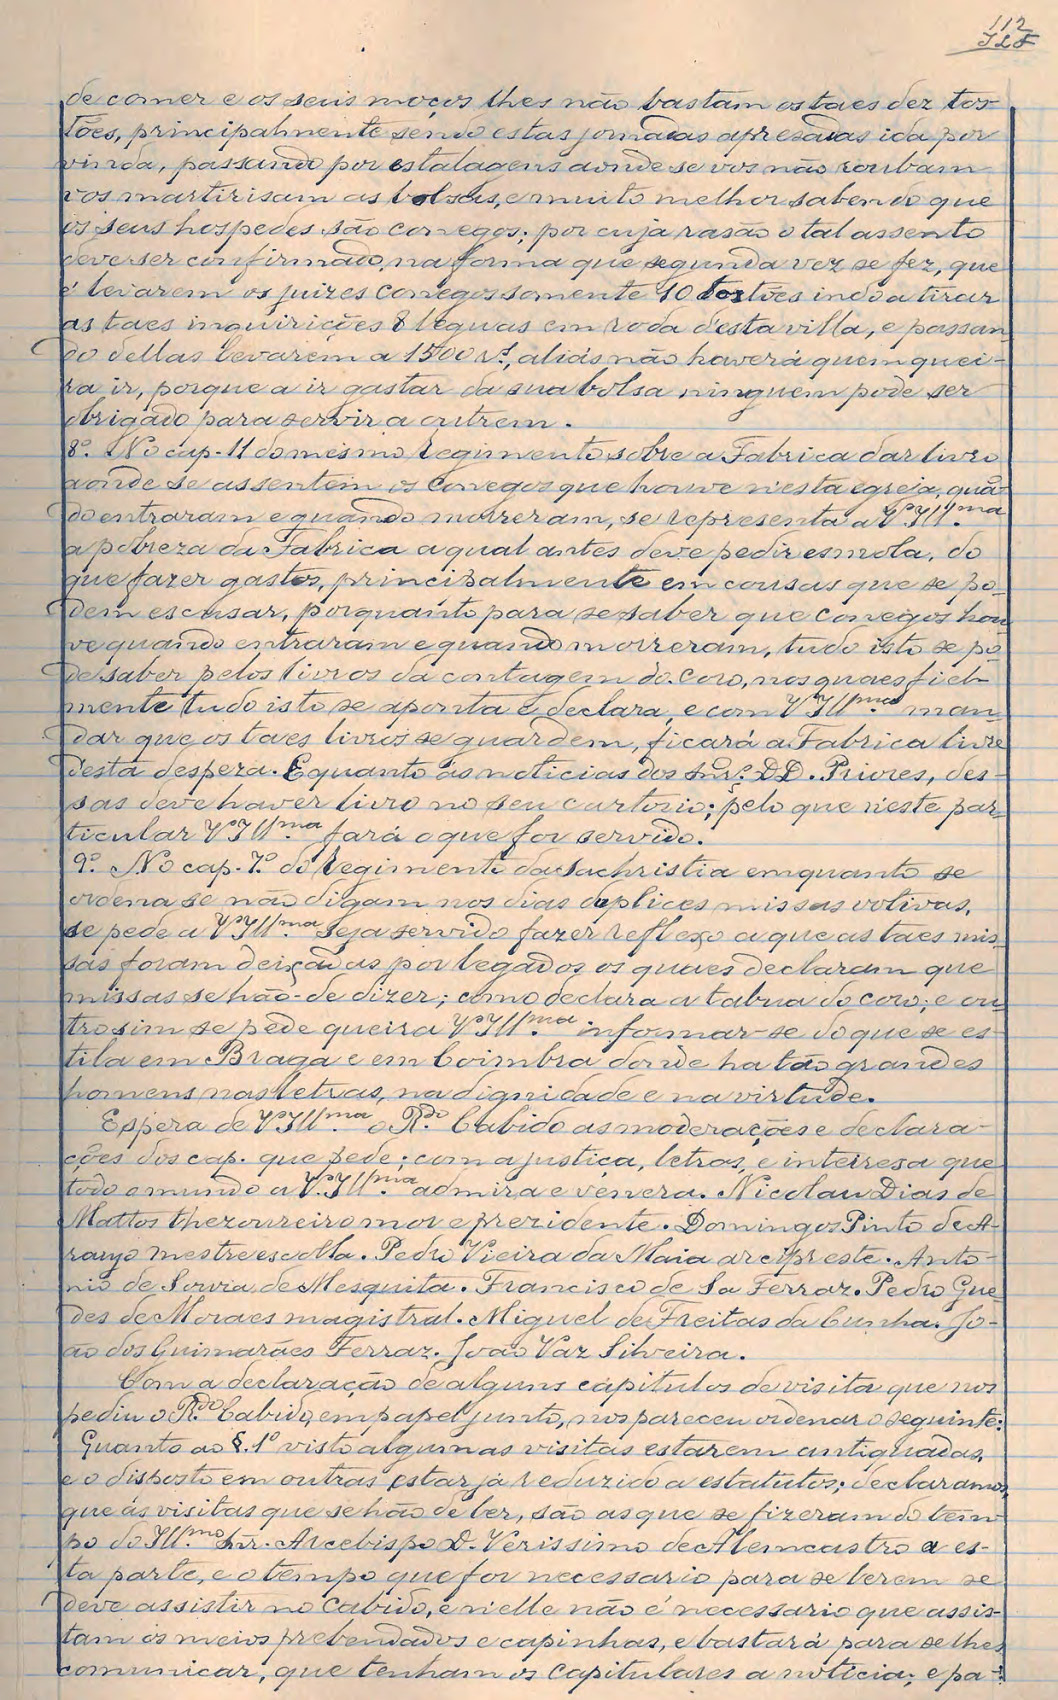 112
de comer e os seus moços lhes não bastam os taes dez tos-
tões, principalmente sendo estas jornadas apresadas ida por
vinda, passando por estalagens aonde se vos não roubam
vos martirisam as bolsas, e muito melhor sabendo que
os seus hospedes são conegos; por cuja rasão o tal assento
deve ser confirmado, na forma que segunda vez se fez, que
é levarem os juizes conegos somente 10 tostões indo a tirar
as taes inquirições 8 leguas em roda d'esta villa, e passan-
do dellas levarem a 1500 rs., aliás não haverá quem quei-
ra ir, porque a ir gastar da sua bolsa ninguem pode ser
obrigado para servir a outrem.
8.º No cap. 11 do mesmo regimento, sobre a Fabrica dar livro
aonde se assentem os conegos que houve n'esta egreja, quan-
do entraram e quando morreram, se representa a V. Ill.ma
a pobreza da Fabrica a qual antes deve pedir esmola, do
que fazer gastos, principalmente em cousas que se po-
dem escusar, porquanto para se saber que conegos hou-
ve quando entraram e quando morreram, tudo isto se po-
de saber pelos livros da contagem do coro, nos quaes fiel-
mente tudo isto se aponta e declara, e com V. Ill.ma man-
dar que os taes livros se guardem, ficará a Fabrica livre
desta despeza. E quanto ás noticias dos Snr.s DD. Priores, des-
sas deve haver livro no seu cartorio; pelo que n'este par-
ticular V. Ill.ma fará o que for servido.
9.º No cap. 7.º do regimento da Sachristia emquanto se
ordena se não digam nos dias duplices missas votivas,
se pede a V. Ill.ma seja servido fazer reflexo a que as taes mis-
sas foram deixadas por legados, os quaes declaram que
missas se hão-de dizer; como declara a tabua do coro; e ou-
trosim se pede queira V. Ill.ma informar-se do que se es-
tila em Braga e em Coimbra donde ha tão grandes
homens nas letras, na dignidade e na virtude.
Espera de V. Ill.ma o R.do Cabido as moderações e declara-
ções dos cap. que pede; com a justiça, letras, e inteiresa que
todo o mundo a V. Ill.ma admira e venera. Nicolau Dias de
Mattos thezoureiro mor e prezidente. Domingos Pinto de A-
raujo mestre escolla. Pedro Vieira da Maia arcipreste. Anto-
nio de Souvia de Mesquita. Francisco de Sa Ferraz. Pedro Gue-
des de Moraes magistral. Miguel de Freitas da Cunha. Jo-
ão dos Guimarães Ferraz. João Vaz Silveira.
Com a declaração de alguns capitulos de visita que nos
pediu o R.do Cabido, em papel junto, nos pareceu ordenar o seguinte:
Quanto ao §. 1.º visto algumas visitas estarem antiquadas,
e o disposto em outras estar já reduzido a estatutos; declaramos,
que ás visitas que se hão de ler, são as que se fizeram do tem-
po do Ill.mo Snr. Arcebispo D. Verissimo de Alemcastro a es-
ta parte, e o tempo que for necessario para se lerem se
deve assistir no Cabido, e n'elle não é necessario que assis-
tam os meios prebendados e capinhas, e bastará para se lhes
comunicar, que tenham os capitulares a noticia; e pa-